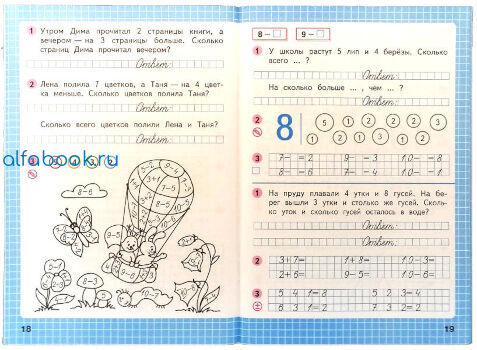 1 Утром Дима прочитал 2 страницы книги, а
вечером — на 3 страницы больше. Сколько
страниц Дима прочитал вечером?
Ответ:
2 Лена полила 7 цветков, а Таня — на 4 цвет-
ка меньше. Сколько цветков полила Таня?
Ответ:
Сколько всего цветков полили Лена и Таня?
Ответ:
alfabook.ru
3
8-6
18
8- 9-
1 У школы растут 5 лип и 4 берёзы. Сколько
всего ... ?
Ответ:
На сколько больше ... , чем ... ?
Ответ:
2 8
3 7- =2 9- =3 10- =8
8- =6 7- =4 10- =1
1 На пруду плавали 4 утки и 8 гусей. На бе-
рег вышли 3 утки и столько же гусей. Сколь-
ко уток и сколько гусей осталось в воде?
Ответ:
2 3+7= 1+8= 10-3=
2+6= 9-5= 10-6=
3 5 4 1=8 5 2 3=4
6 3 1=2 7 3 2=2
19